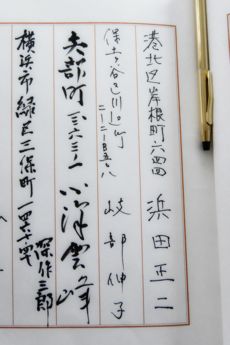 港北区岸根町六四四 浜田正二
保土ヶ谷区川辺町
二ー二ーB五〇八 岐部伸子
矢部町三六三ー一 小澤雲峰
横浜市緑区三保町一四六ー四 深作三郎